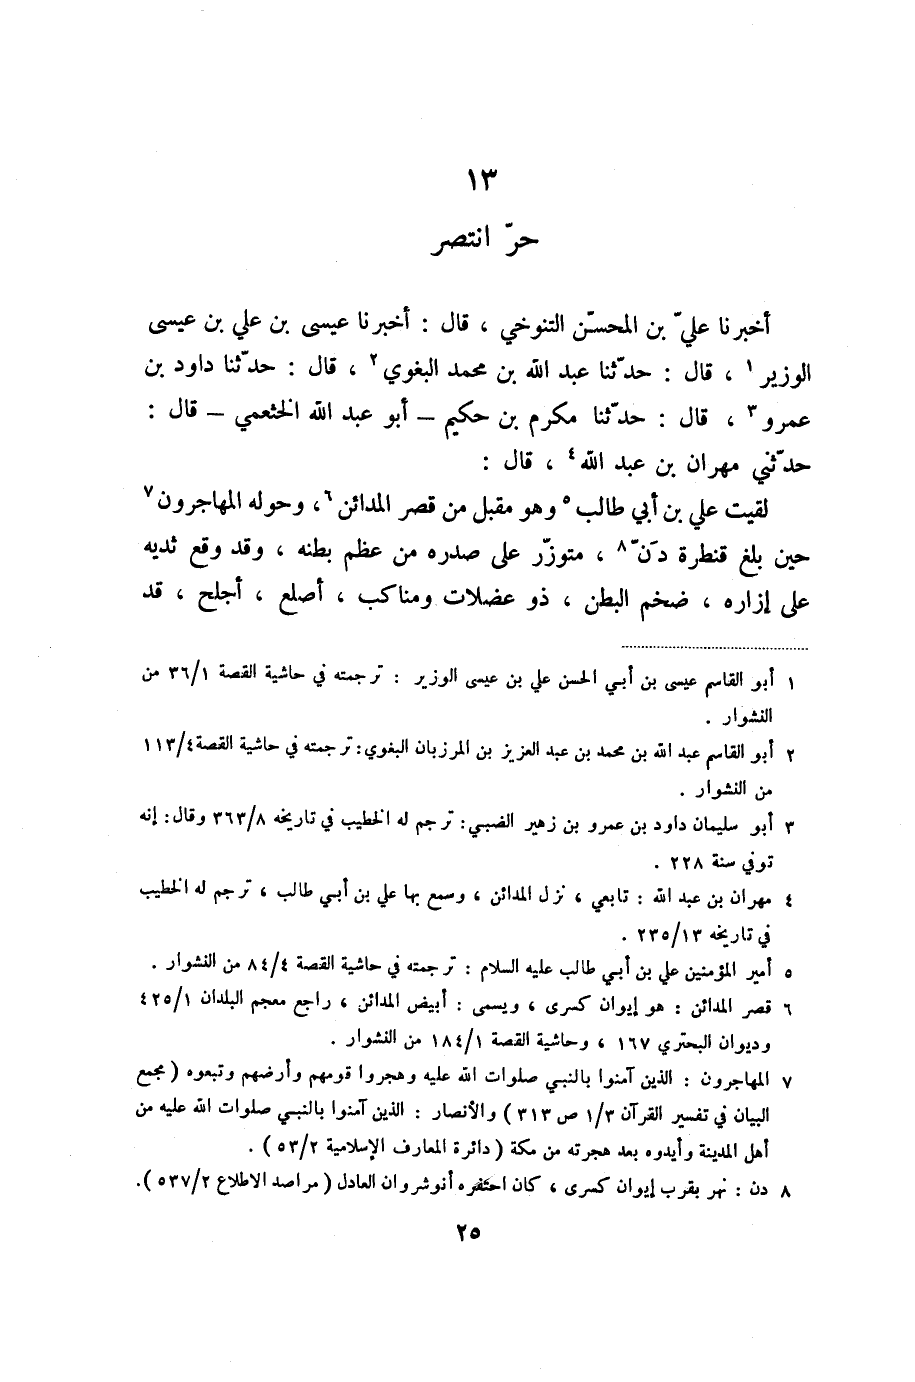 ١٣
حرّ انتصر
أخبرنا عليّ بن المحسّن التنوخي ، قال : أخبرنا عيسى بن علي بن عيسى
الوزير ١ ، قال : حدّثنا عبد الله بن محمد البغوي ٢ ، قال : حدّثنا داود بن
عمرو ٣ ، قال : حدّثنا مكرم بن حكيم – أبو عبد الله الخثعمي – قال :
حدّثني مهران بن عبد الله ٤ ، قال :
لقيت علي بن أبي طالب ٥ وهو مقبل من قصر المدائن ٦ ، وحوله المهاجرون ٧
حين بلغ قنطرة دَنّ ٨ ، متوزّر على صدره من عظم بطنه ، وقد وقع ثديه
على إزاره ، ضخم البطن ، ذو عضلات ومناكب ، أصلع ، أجلح ، قد
١ أبو القاسم عيسى بن أبي الحسن علي بن عيسى الوزير : ترجمته في حاشية القصة ٣٦/١ من
النشوار .
٢ أبو القاسم عبد الله بن محمد بن عبد العزيز بن المرزبان البغوي : ترجمته في حاشية القصة ١١٣/٤
من النشوار .
٣ أبو سليمان داود بن عمرو بن زهير الضبي : ترجم له الخطيب في تاريخه ٣٦٣/٨ وقال : إنه
توفي سنة ٢٢٨ .
٤ مهران بن عبد الله : تابعي ، نزل المدائن ، وسمع بها علي بن أبي طالب ، ترجم له الخطيب
في تاريخه ٢٣٥/١٣ .
٥ أمير المؤمنين علي بن أبي طالب عليه السلام : ترجمته في حاشية القصة ٨٤/٤ من النشوار .
٦ قصر المدائن : هو إيوان كسرى ، ويسمى : أبيض المدائن ، راجع معجم البلدان ٤٢٥/١
وديوان البحتري ١٦٧ ، وحاشية القصة ١٨٤/١ من النشوار .
٧ المهاجرون : الذين آمنوا بالنبي صلوات الله عليه وهجروا قومهم وأرضهم وتبعوه ( مجمع
البيان في تفسير القرآن ١/٣ ص ٣١٣ ) والأنصار : الذين آمنوا بالنبي صلوات الله عليه من
أهل المدينة وأيدوه بعد هجرته من مكة ( دائرة المعارف الإسلامية ٥٣/٢ ) .
٨ دن : نهر بقرب إيوان كسرى ، كان احتفره أنوشروان العادل ( مراصد الاطلاع ٥٣٧/٢ ) .
٢٥